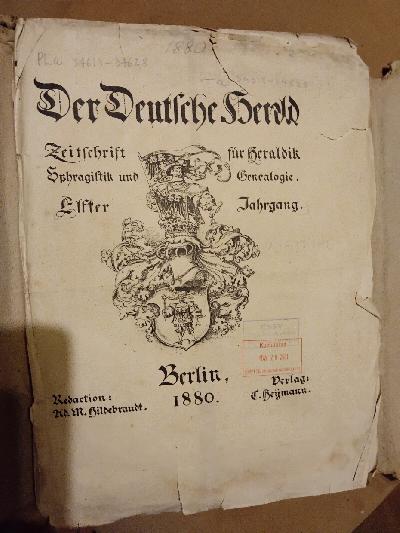 1880
Ph.a 34613-34628
Der Deutsche Herold
Zeitschrift für Heraldik
Sphragistik und Genealogie.
Elfter Jahrgang.
Berlin,
1880.
Redaction:
Ad. M. Hildebrandt.
Verlag:
C. Heymann.